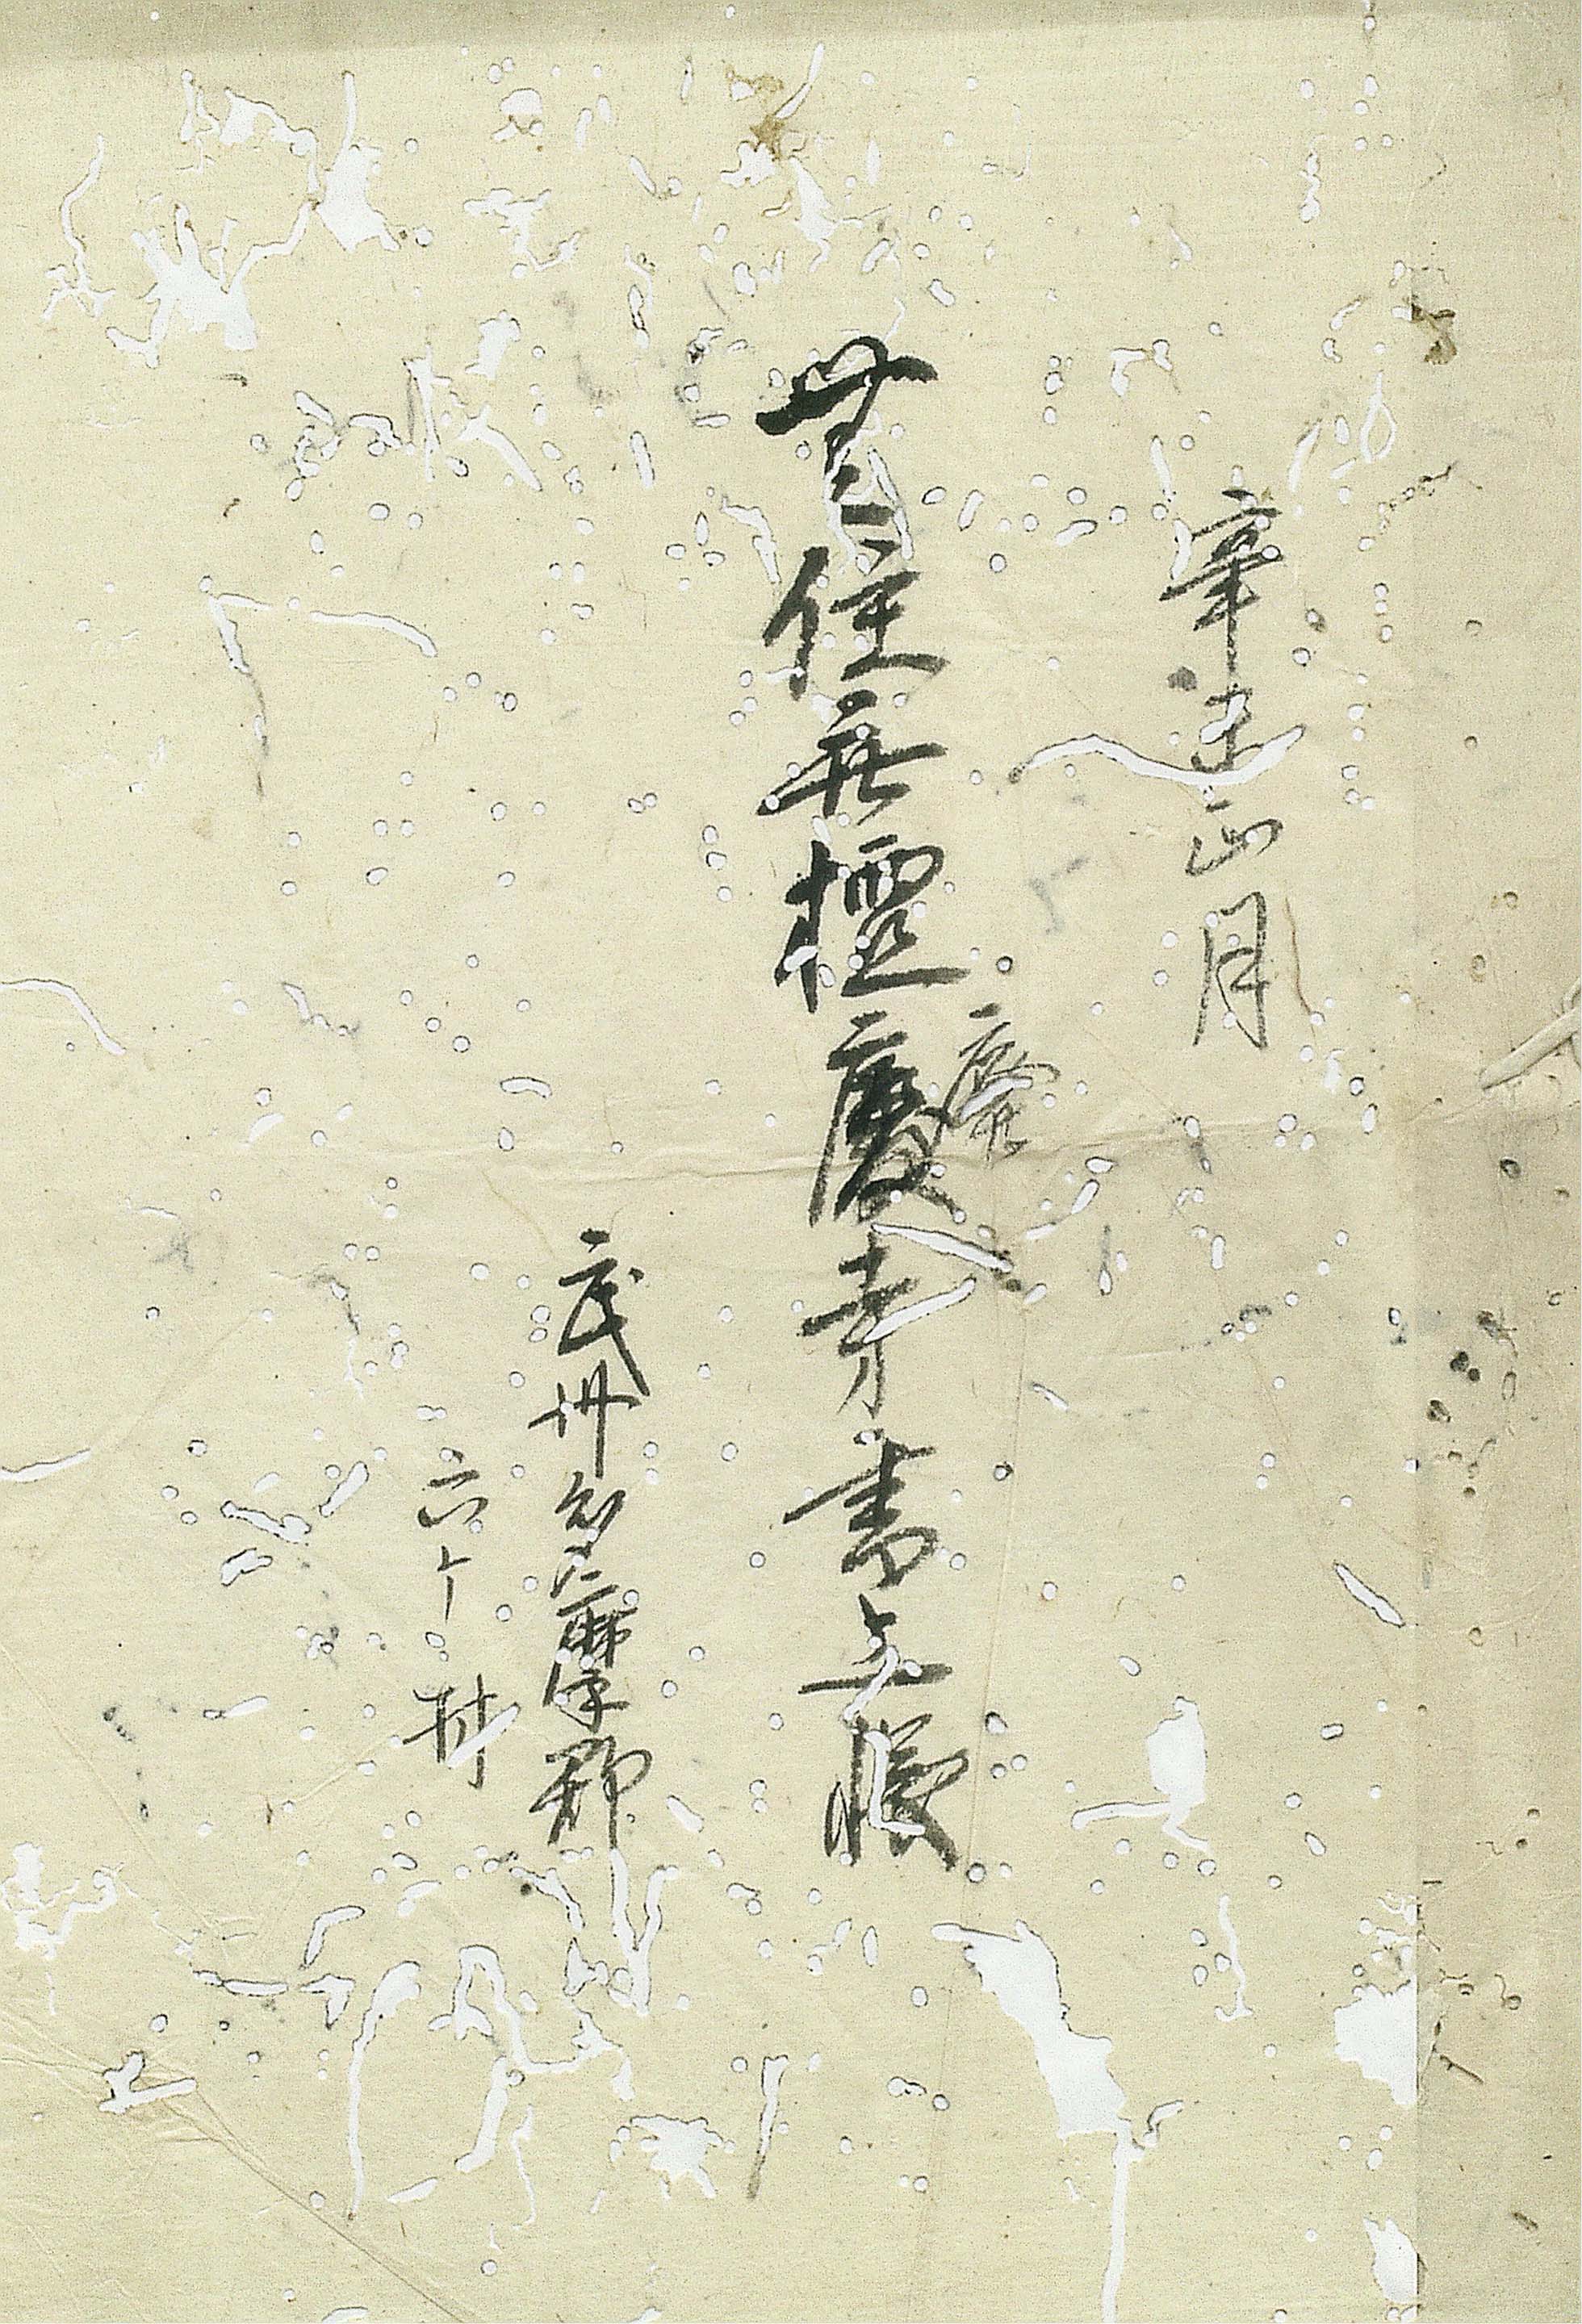 辛未正月
無住無檀慶寺書上帳
廢
武州多摩郡
六ケ村